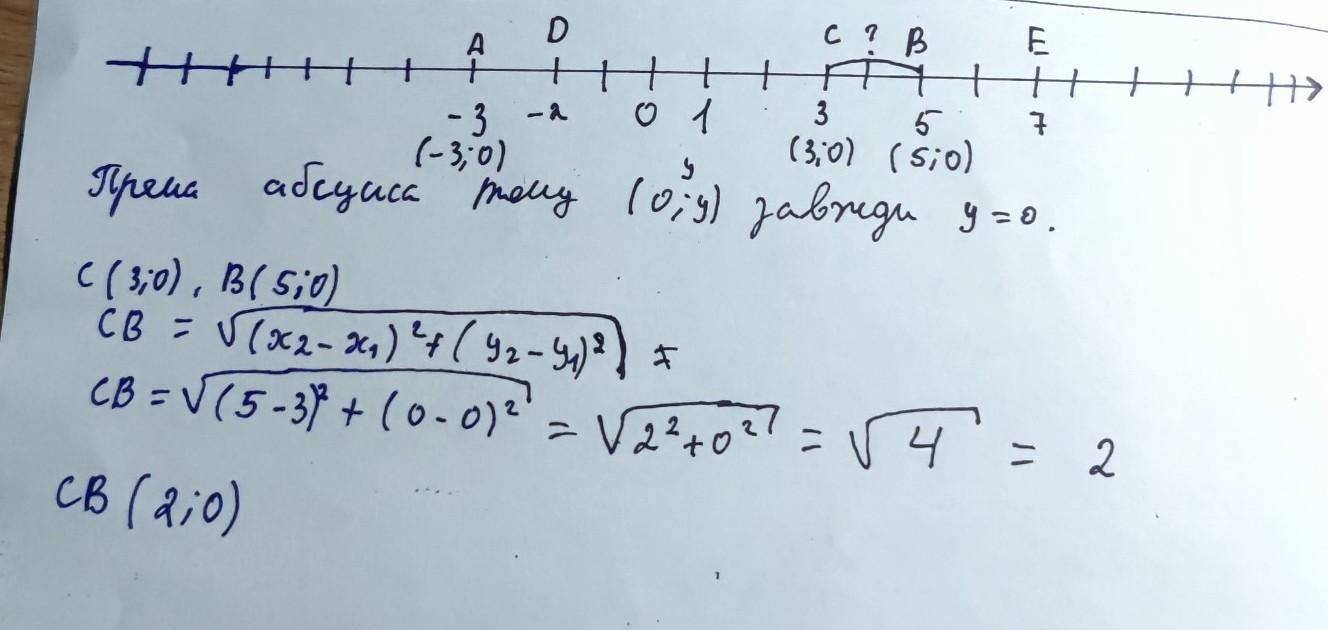 A D C ? B E
-3 -2 0 1 3 5 7
(-3;0) (3;0) (5;0)
y
Пряма абсциса тому (0;y) завжди y = 0.
C(3;0), B(5;0)
CB = √((x₂-x₁)²+(y₂-y₁)²) =
CB = √(5-3)² + (0-0)² = √2²+0² = √4 = 2
CB (2;0)